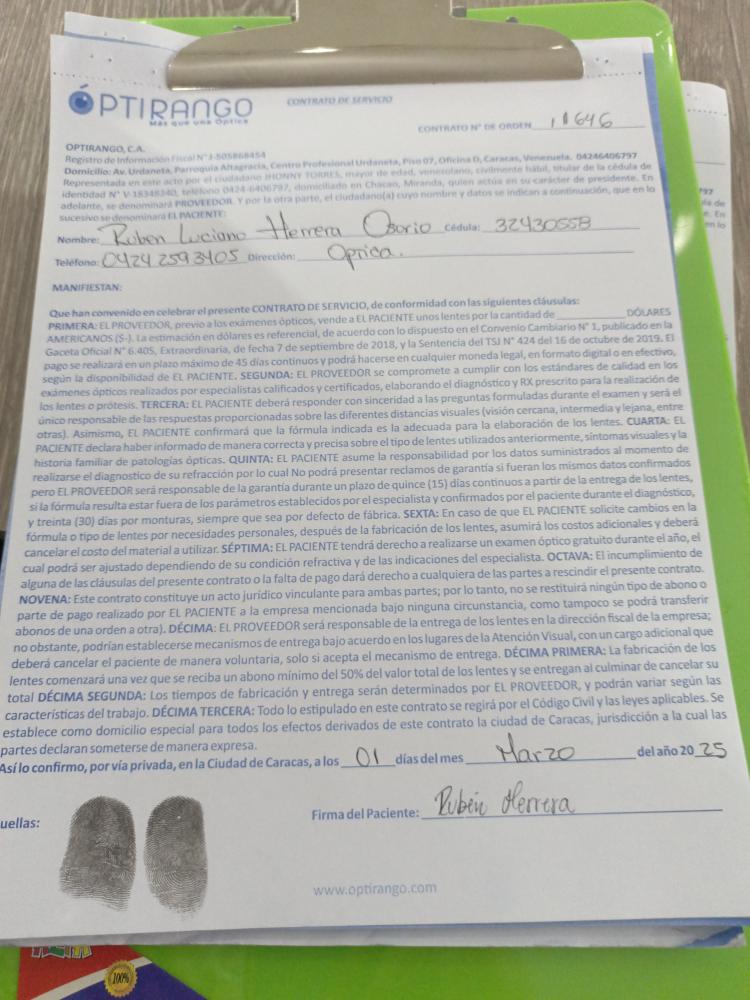 ÓPTIRANGO
Más que una Óptica
CONTRATO DE SERVICIO
CONTRATO N° DE ORDEN 11646
OPTIRANGO, C.A.
Registro de Información Fiscal N° J-505868454
Domicilio: Av. Urdaneta, Parroquia Altagracia, Centro Profesional Urdaneta, Piso 07, Oficina D, Caracas, Venezuela. 04246406797
Representada en este acto por el ciudadano JHONNY TORRES, mayor de edad, venezolano, civilmente hábil, titular de la cédula de
identidad N° V-18348340, teléfono 0424-6406797, domiciliado en Chacao, Miranda, quien actúa en su carácter de presidente. En
adelante, se denominará PROVEEDOR. Y por la otra parte, el ciudadano(a) cuyo nombre y datos se indican a continuación, que en lo
sucesivo se denominará EL PACIENTE:
Nombre: Ruben Luciano Herrera Osorio Cédula: 32430558
Teléfono: 04242593405 Dirección: Optica.
MANIFIESTAN:
Que han convenido en celebrar el presente CONTRATO DE SERVICIO, de conformidad con las siguientes cláusulas:
PRIMERA: EL PROVEEDOR, previo a los exámenes ópticos, vende a EL PACIENTE unos lentes por la cantidad de ____________ DÓLARES
AMERICANOS ($-). La estimación en dólares es referencial, de acuerdo con lo dispuesto en el Convenio Cambiario N° 1, publicado en la
Gaceta Oficial N° 6.405, Extraordinaria, de fecha 7 de septiembre de 2018, y la Sentencia del TSJ N° 424 del 16 de octubre de 2019. El
pago se realizará en un plazo máximo de 45 días continuos y podrá hacerse en cualquier moneda legal, en formato digital o en efectivo,
según la disponibilidad de EL PACIENTE. SEGUNDA: EL PROVEEDOR se compromete a cumplir con los estándares de calidad en los
exámenes ópticos realizados por especialistas calificados y certificados, elaborando el diagnóstico y RX prescrito para la realización de
los lentes o prótesis. TERCERA: EL PACIENTE deberá responder con sinceridad a las preguntas formuladas durante el examen y será el
único responsable de las respuestas proporcionadas sobre las diferentes distancias visuales (visión cercana, intermedia y lejana, entre
otras). Asimismo, EL PACIENTE confirmará que la fórmula indicada es la adecuada para la elaboración de los lentes. CUARTA: EL
PACIENTE declara haber informado de manera correcta y precisa sobre el tipo de lentes utilizados anteriormente, síntomas visuales y la
historia familiar de patologías ópticas. QUINTA: EL PACIENTE asume la responsabilidad por los datos suministrados al momento de
realizarse el diagnostico de su refracción por lo cual No podrá presentar reclamos de garantía si fueran los mismos datos confirmados
pero EL PROVEEDOR será responsable de la garantía durante un plazo de quince (15) días continuos a partir de la entrega de los lentes,
si la fórmula resulta estar fuera de los parámetros establecidos por el especialista y confirmados por el paciente durante el diagnóstico,
y treinta (30) días por monturas, siempre que sea por defecto de fábrica. SEXTA: En caso de que EL PACIENTE solicite cambios en la
fórmula o tipo de lentes por necesidades personales, después de la fabricación de los lentes, asumirá los costos adicionales y deberá
cancelar el costo del material a utilizar. SÉPTIMA: EL PACIENTE tendrá derecho a realizarse un examen óptico gratuito durante el año, el
cual podrá ser ajustado dependiendo de su condición refractiva y de las indicaciones del especialista. OCTAVA: El incumplimiento de
alguna de las cláusulas del presente contrato o la falta de pago dará derecho a cualquiera de las partes a rescindir el presente contrato.
NOVENA: Este contrato constituye un acto jurídico vinculante para ambas partes; por lo tanto, no se restituirá ningún tipo de abono o
parte de pago realizado por EL PACIENTE a la empresa mencionada bajo ninguna circunstancia, como tampoco se podrá transferir
abonos de una orden a otra). DÉCIMA: EL PROVEEDOR será responsable de la entrega de los lentes en la dirección fiscal de la empresa;
no obstante, podrían establecerse mecanismos de entrega bajo acuerdo en los lugares de la Atención Visual, con un cargo adicional que
deberá cancelar el paciente de manera voluntaria, solo si acepta el mecanismo de entrega. DÉCIMA PRIMERA: La fabricación de los
lentes comenzará una vez que se reciba un abono mínimo del 50% del valor total de los lentes y se entregan al culminar de cancelar su
total DÉCIMA SEGUNDA: Los tiempos de fabricación y entrega serán determinados por EL PROVEEDOR, y podrán variar según las
características del trabajo. DÉCIMA TERCERA: Todo lo estipulado en este contrato se regirá por el Código Civil y las leyes aplicables. Se
establece como domicilio especial para todos los efectos derivados de este contrato la ciudad de Caracas, jurisdicción a la cual las
partes declaran someterse de manera expresa.
Así lo confirmo, por vía privada, en la Ciudad de Caracas, a los 01 días del mes Marzo del año 2025
uellas:
Firma del Paciente: Rubén Herrera
www.optirango.com
100%